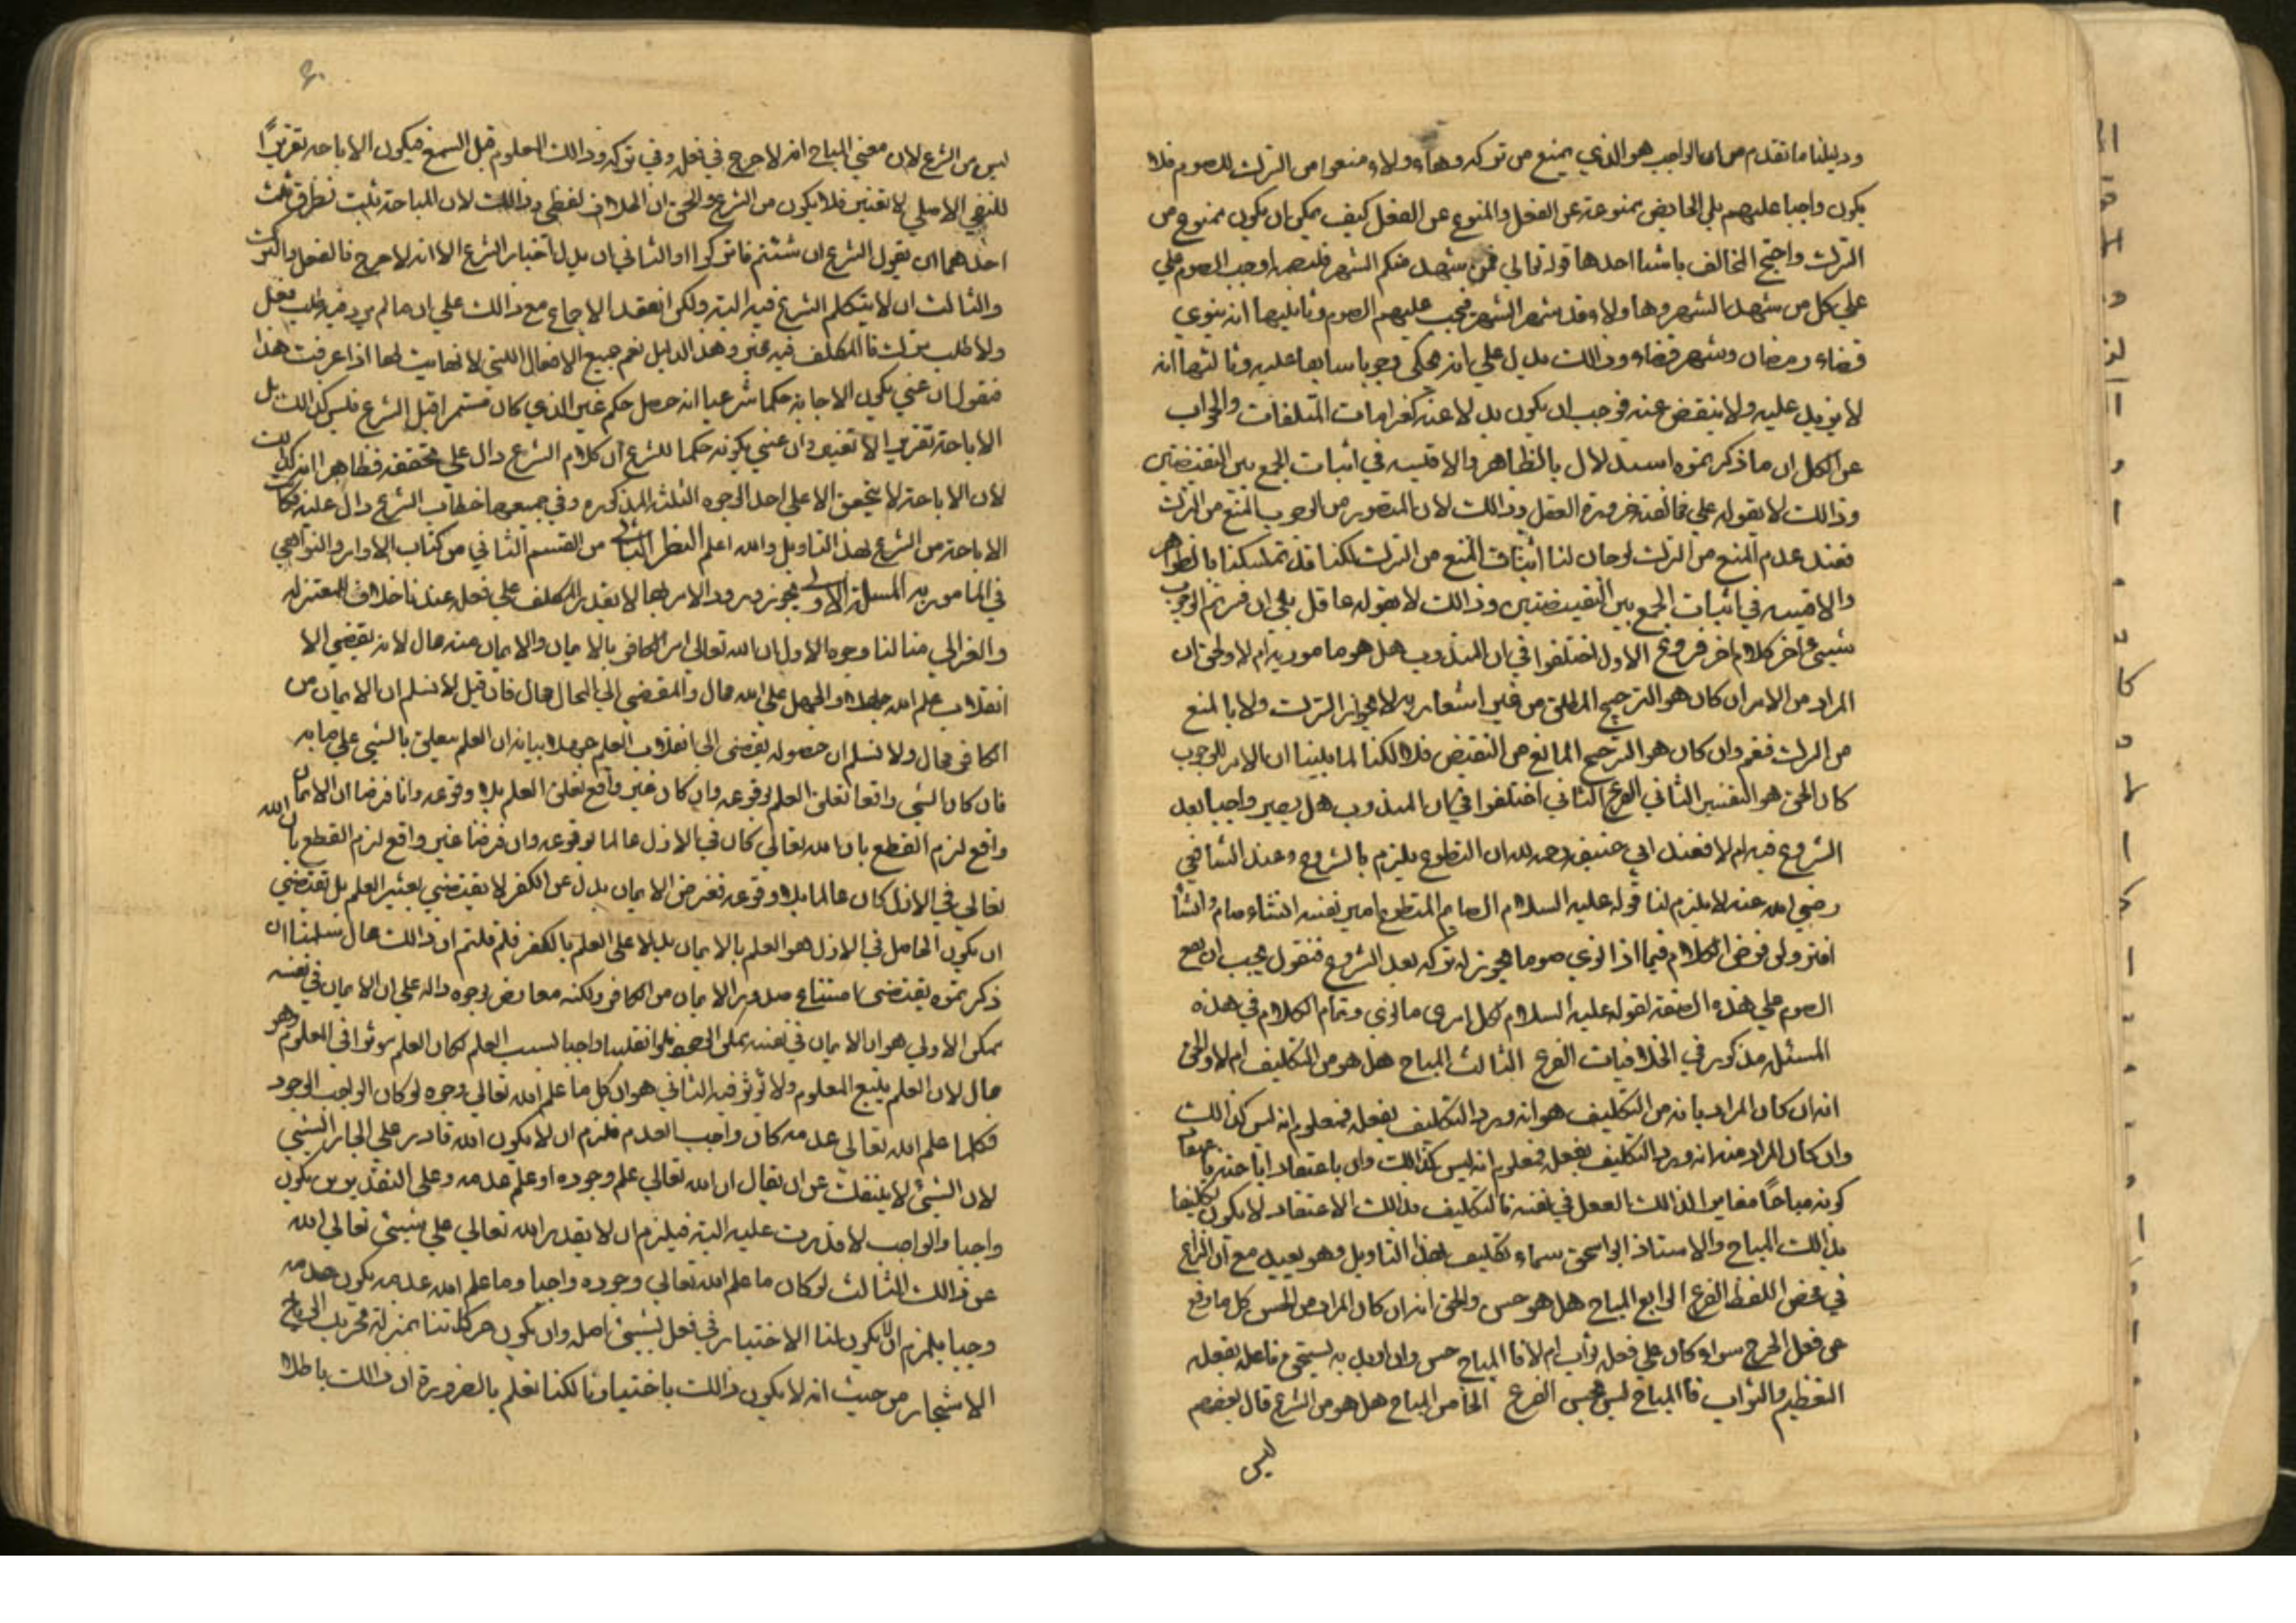 ودليلنا ما تقدم من ان الواجب هو الذي يمنع من تركه وهاولاء ولاء منعوا من الترك للصوم فلا
يكون واجبا عليهم بلي الحايض ممنوعة عن الفعل والمنوع عن الفعل كيف يمكن ان يكون ممنوع من
الترك واحتج المخالف باشيا احدها قوله تعالي فمن شهد منكم الشهر فليصمه اوجب الصوم علي
علي كل من شهد الشهر وهاولاء قد شهد الشهر فيجب عليهم الصوم وثانيها انه ينوي
قضاء رمضان وشهر قضاء وذالك يدل علي انه يحكي وجوبا سابقا عليه وثالثها انه
لا يزيد عليه ولا ينقض عنه فوجب ان يكون بدلا عنه كغرامات المتلفات والجواب
عن الكل ان ما ذكرتموه استدلال بالظاهر والاقيسه في اثبات الجمع بين النقيضين
وذالك لا يقوله علي مخالفته ضرورة العقل وذالك لان المتصور من الوجوب المنع من الترك
فعند عدم المنع من الترك لو حاولنا اثبات المنع من الترك لكنا قد تمسكنا بالظواهر
والاقيسه في اثبات الجمع بين النقيضين وذالك لا يقوله عاقل بلي ان فسرتم الوجوب
بشيئ اخر كلام اخر فروع الاول اختلفوا في ان المندوب هل هو مامور به ام لا والحق ان
المراد من الامر ان كان هو الترجيح المطلق من غير اشعار به لا بجواز الترك ولا بالمنع
من الترك فنعم وان كان هو الترجيح المانع من النقيض فلا لكنا لما بينا ان الامر للوجوب
كان الحق هو التفسير الثاني الفرع الثاني اختلفوا في ان المندوب هل يصير واجبا بعد
الشروع فيه ام لا فعند ابي حنيفه رحمه الله ان التطوع يلزم بالشروع وعند الشافعي
رضي الله عنه لا يلزم لنا قوله عليه السلام الصايم المتطوع امير نفسه انشاء صام وانشأ
افتر ولى نوض الكلام فيما اذا نوي صوما يجوز له تركه بعد الشروع فنقول يجب ان يصح
الصوم علي هذه الصفة لقوله عليه السلام لكل امرى ما نوى وتمام الكلام في هذه
المسئله مذكور في الخلافيات الفرع الثالث المباح هل هو من التكليف ام لا والحق
انه ان كان المراد بانه من التكليف هو انه ورد التكليف بفعله فمعلوم انه ليس كذالك
وان كان المراد منه انه ورد التكليف بفعله فمعلوم انه ليس كذالك وان باعتقاد اباحته فاعتقاد
كونه مباحًا مغاير الذالك الفعل في نفسه فالتكليف بذالك الاعتقاد لا يكون تكليفا
بذالك المباح والاستاذ ابو اسحق سماه تكليف بهذا التاويل وهو بعيد مع ان النزاع
في محض اللفظ الفرع الرابع المباح هل هو حسن والحق انه ان كان المراد من الحسن كل ما رفع
عن فعل الحرج سواء كان علي فعله ثواب ام لا فا المباح حسن وان اريد به يستحق فاعله بفعله
التعظيم والثواب فا المباح ليس بحسن الفرع الخامس المباح هل هو من الشرع قال بعضهم
ليس
ليس من الشرع لان معني المباح انه لا حرج في فعل وفي تركه وذالك المعلوم قبل السمع فيكون الاباحه تقريرًا
للنفي الاصلي لا تغيير فلا يكون من الشرع والحق ان الخلاف لفظي وذالك لان المباحة تثبت بطرق ثلث
احدهما ان يقول الشرع ان شئتم فاتركوا او الثاني ان يدل اخبار الشرع الا انه لا حرج فا لفعل والترك
والثالث ان لا يتكلم الشرع فيه البته ولكن انعقد الاجماع مع ذالك علي ان ما لم يرد فيه طلب فعل
ولا طلب ترك فا المكلف فيه مخير وهذ الدليل نعم جميع الافعال اللتي لا نهايت لها اذا عرفت هذا
فنقول ان عني بكون الاباحه حكما شرعيا انه حصل حكم غير الذي كان مستمرا قبل الشرع فليس كذالك بل
الاباحة تقرير الا تغيير وان عني بكونه حكما للشرع ان كلام الشرع دال علي تحققه فظاهر انه كذالك
لان الاباحة لا يتحقق الا علي احد الوجوه الثلثه المذكوره وفي جميعها خطاب الشرع دال عليه فكا
الاباحة من الشرع بهذ التاويل والله اعلم النظر الثاني من القسم الثاني من كتاب الاوامر والنواهي
في المامور به المسئلة الاولي يجوز ورود الامر بما لا يقدر المكلف علي فعله عندنا خلاف للمعتزله
والغزالي منا لنا وجوه الاول ان الله تعالي امر الكافر بالايمان والايمان منه محال لانه يفضي الا
انقلاب علم الله جهلا والجهل علي الله محال والمفضي الي المحال محال فان قيل لا نسلم ان الايمان من
الكافر محال ولا نسلم ان حصوله يفضي الي انقلاب العلم جهلا بيانه ان العلم يتعلق بالشيئ علي ما به
فان كان الشي واقعا تعلق العلم بوقوعه وان كان غير واقع تعلق العلم بلا وقوعه وانا فرضنا ان الايمان
واقع لزم القطع بان الله تعالي كان في الازل عالما بوقوعه وان فرضنا غير واقع لزم القطع بان الله
تعالي في الازل كان عالما بلا وقوعه ففرض الايمان بدل عن الكفر لا يقتضي تغيير العلم بل يقتضي
ان يكون الحاصل في الازل هو العلم بالايمان بدلا علي العلم بالكفر فلم قلتم ان ذالك محال سلمنا ان
ذكرتموه يقتضي امتناع صدور الايمان من الكافر ولكنه معارض بوجوه داله علي ان الايمان في نفسه
ممكن الاولي هو ان الايمان في نفسه ممكن الوجود فلو انقلب واجبا بسبب العلم لكان العلم موثرا في المعلوم وهو
محال لان العلم يتبع المعلوم ولا تؤثر فيه الثاني هو ان كل ما علم الله تعالي وجوه لو كان الواجب الوجود
فكلما علم الله تعالى عدمه كان واجب العدم فلزم ان لا يكون الله قادر علي الجاز الشيئ
لان الشيئ لا ينفك عن ان يقال ان الله تعالي علم وجوده او علم عدمه وعلي التقديرين يكون
واجبا والواجب لا قدرت عليه البته فيلزم ان لا يقدر الله تعالي علي شيئ تعالي الله
عن ذالك الثالث لو كان ما علم الله تعالي وجوده واجبا وما علم الله عدمه يكون عدمه
وجبا يلزم ان لا يكون لنا الاختيار في فعل بشيئ اصلا وان يكون حركاتنا بمنزلة تحريك الرياح
الاشجار من حيث انه لا يكون ذالك باختيارنا لكنا نعلم بالضرورة ان ذالك باطلا